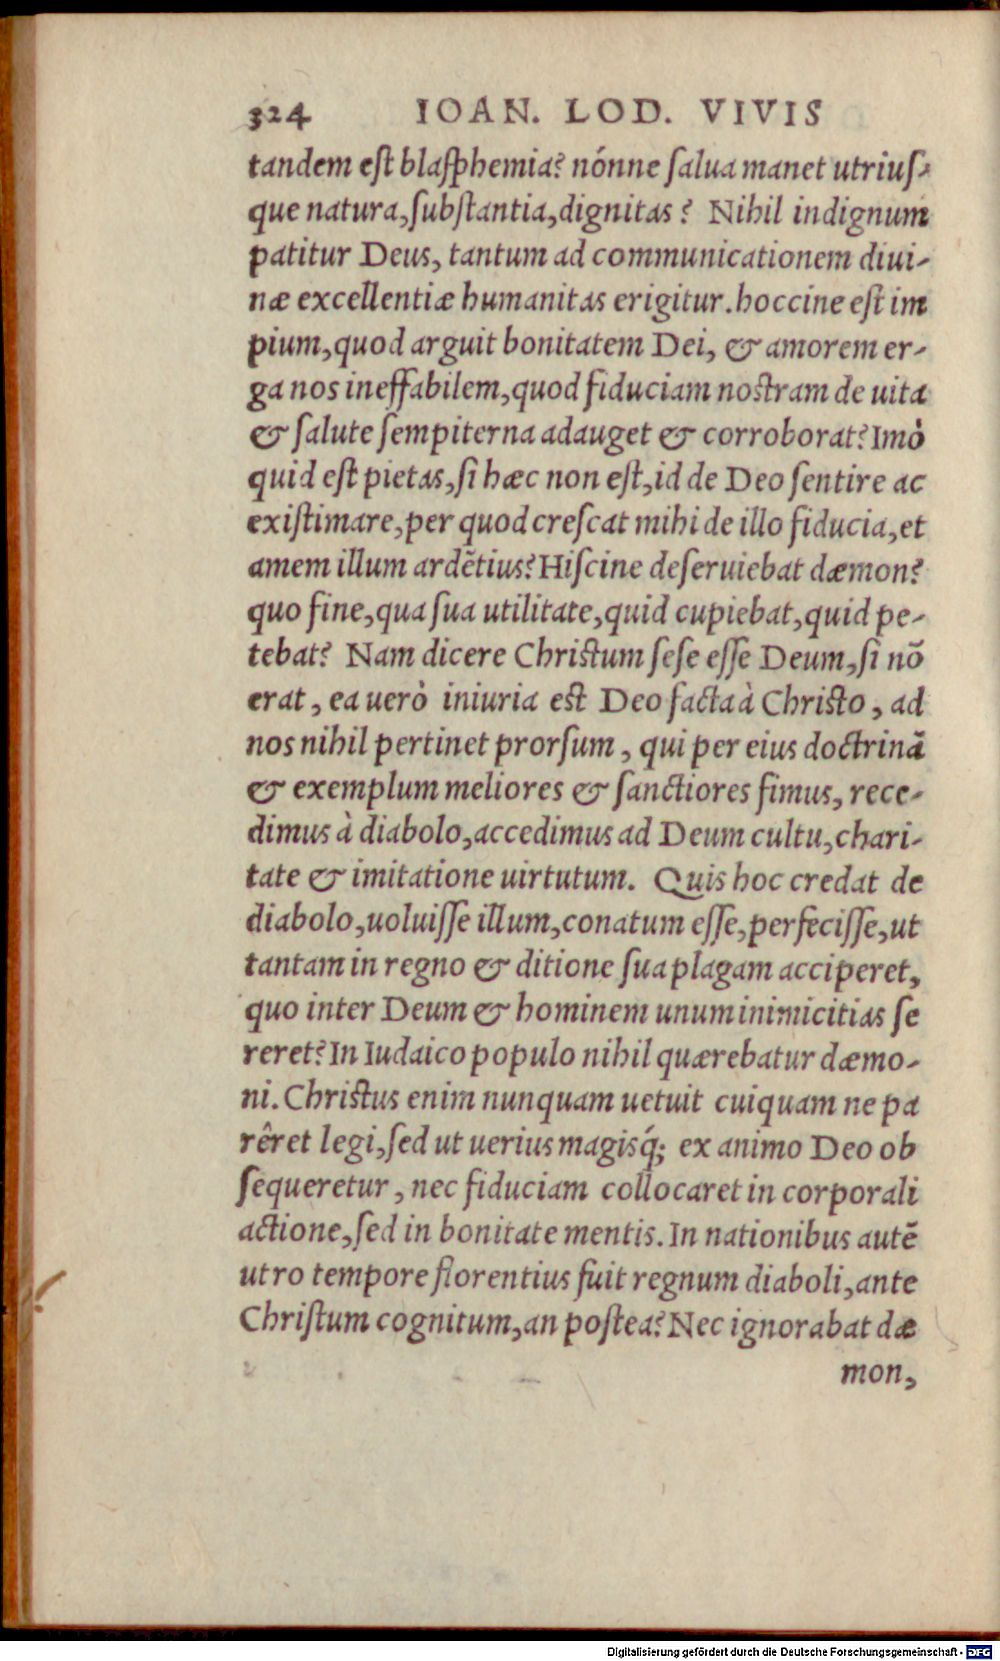 324 IOAN. LOD. VIVIS
tandem eſt blaſphemia? nónne ſalua manet utriuſ-
que natura,ſubſtantia,dignitas? Nihil indignum
patitur Deus, tantum ad communicationem diui-
næ excellentiæ humanitas erigitur. hoccine eſt im
pium,quod arguit bonitatem Dei, & amorem er-
ga nos ineffabilem,quod fiduciam noſtram de uita
& ſalute ſempiterna adauget & corroborat? Imò
quid eſt pietas,ſi hæc non eſt,id de Deo ſentire ac
exiſtimare,per quod creſcat mihi de illo fiducia,et
amem illum ardētius? Hiſcine deſeruiebat dæmon?
quo fine,qua ſua utilitate,quid cupiebat,quid pe-
tebat? Nam dicere Chriſtum ſeſe eſſe Deum,ſi nō
erat, ea uerò iniuria eſt Deo facta à Chriſto, ad
nos nihil pertinet prorſum, qui per eius doctrinā
& exemplum meliores & ſanctiores fimus, rece-
dimus à diabolo,accedimus ad Deum cultu,chari-
tate & imitatione uirtutum. Quis hoc credat de
diabolo,uoluiſſe illum,conatum eſſe,perfeciſſe,ut
tantam in regno & ditione ſua plagam acciperet,
quo inter Deum & hominem unum inimicitias ſe
reret? In Iudaico populo nihil quærebatur dæmo-
ni. Chriſtus enim nunquam uetuit cuiquam ne pa
rêret legi,ſed ut uerius magisq́; ex animo Deo ob
ſequeretur, nec fiduciam collocaret in corporali
actione,ſed in bonitate mentis. In nationibus autē
utro tempore florentius fuit regnum diaboli,ante
Chriſtum cognitum,an poſtea? Nec ignorabat dæ
mon,
Digitalisierung gefördert durch die Deutsche Forschungsgemeinschaft - DFG